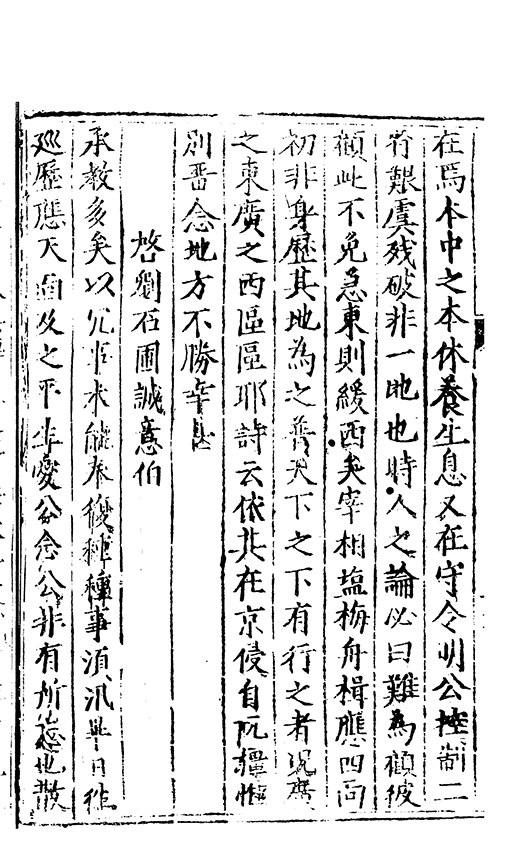 在焉本中之本休養生息又在守令明公控制二
省艱虞残破非一地也時人之論必曰難為顧彼
顧此不免急東則緩西矣宰相塩梅舟楫應四向
初非身歷其地為之普天下之下有行之者况廣
之東廣之西區區耶詩云依其在京侵自阮疆惟
別嗇念地方不勝幸甚
啓劉石圃誠意伯
承教多矣以冗事未能奉復種種事須汛 日徃
廵歷應天面及之平生愛公念公非有所 也散